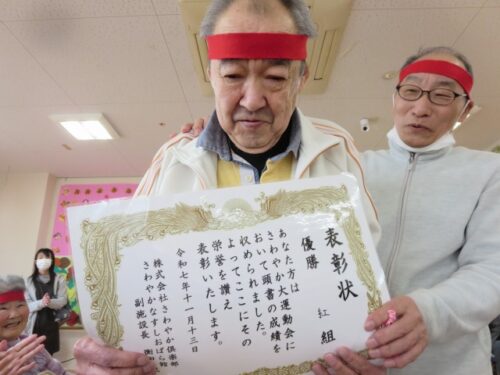 表彰状
優勝 紅組
あなた方は
さわやか大運動会に
おいて頭書の成績を
収められました。
よってここにその
栄誉を讃え
表彰いたします。
令和七年十一月十三日
株式会社さわやか倶楽部
さわやかなすしおばら
副施設長